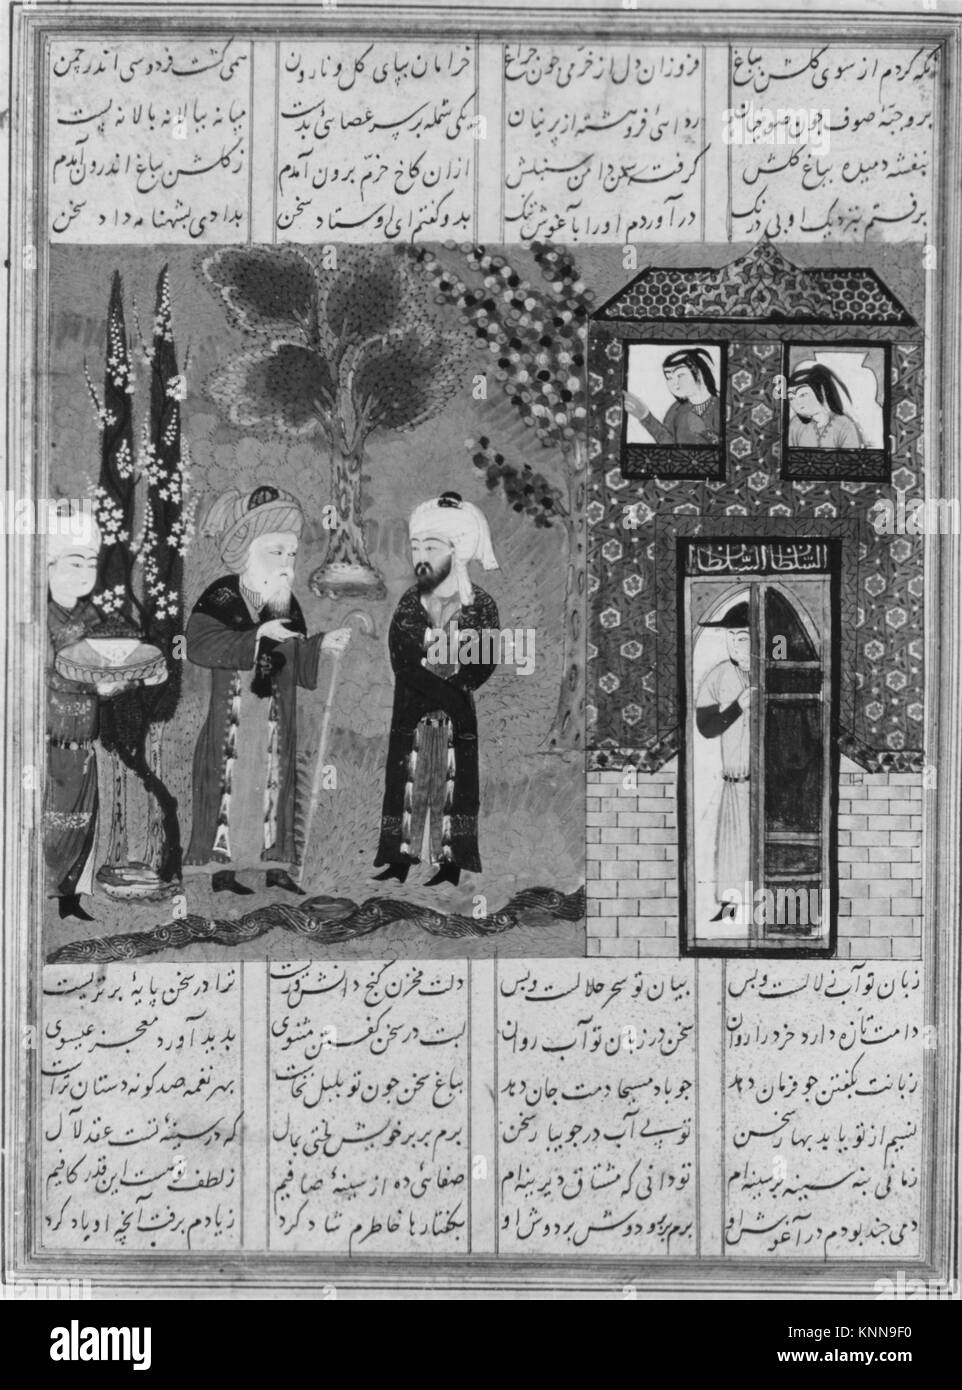 نگه کردم از سوی گلشن بباغ فروزان دل از خرمی چون چراغ خرامان بپای گل و نارون همی گشت فردوسی اندر چمن
بر و جبهٔ صوف چون صوفیان ردائی فروهشته از پرنیان یکی شمله بر سر عصائی بدست میانه ببالا نه بالا نه پست
بنفشه دمیده بباغ گلش گرفته سمن دامن سنبلش ازان کاخ خرم برون آمدم ز گلشن بباغ اندرون آمدم
برفتم بنزدیک او بی درنگ در آوردم او را بآغوش تنگ بدو گفتم ای اوستاد سخن بدادی بشهنامه داد سخن
السلطان السلطان
زبان تو آبی زلالست و بس بیان تو سحر حلالست و بس دلت مخزن گنج دانشوریست ترا در سخن پایهٔ برتریست
دمت تازه دارد خرد را روان سخن در زبان تو آب روان لبت در سخن گفتن مثنوی پدید آورد معجز عیسوی
زبانت بگفتن چو فرمان دهد چو باد مسیحا دمت جان دهد بباغ سخن چون تو بلبل نخاست بهر نغمه صد گونه دستان تراست
نسیم از تو یابد بهار سخن توئی آب در جویبار سخن برم بر بر خویش لختی بمال که در سینهٔ تست عقد لآل
زمانی بنه سینه بر سینه‌ام تو دانی که مشتاق دیرینه‌ام صفائی ده از سینهٔ صافیم ز لطف تو هست این قدر کافیم
دمی چند بودم در آغوش او برم بر بر و دوش بر دوش او بگفتارها خاطرم شاد کرد ز یادم برفت آنچه او یاد کرد
alamy
alamy stock photo
KNN9F0
www.alamy.com